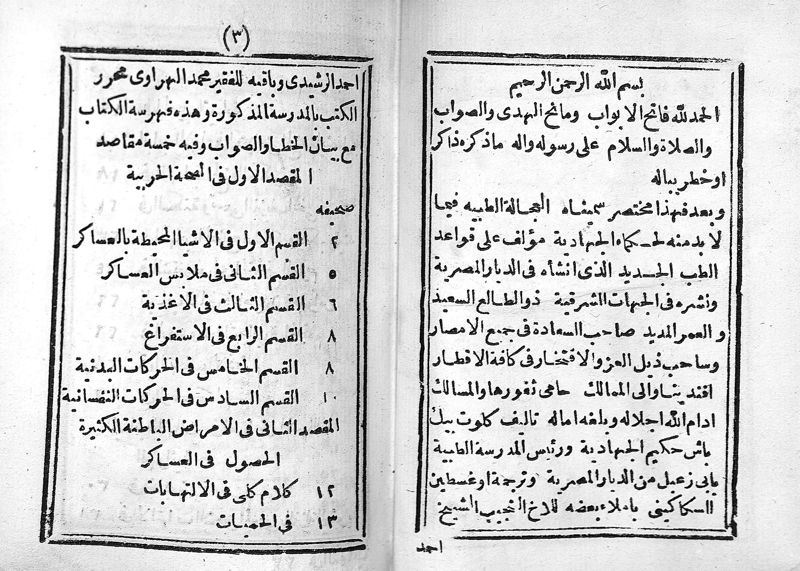 بسم الله الرحمن الرحيم
الحمد لله فاتح الابواب ومانح الهدى والصواب
والصلاة والسلام على رسوله واله ما ذكره ذاكر
او خطر بباله
وبعد فهذا مختصر سميناه العجالة الطبيه فيما
لا بد منه لحكماء الجهادية مؤلف على قواعد
الطب الجديد الذى انشأه فى الديار المصرية
ونشره فى الجهات الشرقية ذو الطالع السعيد
والعمر المديد صاحب السعادة فى جميع الامصار
وساحب ذيل العز والافتخار فى كافة الاقطار
افندينا والى الممالك حامى ثغورها والمسالك
ادام الله اجلاله وبلغه اماله تاليف كلوت بيك
باش حكيم الجهادية ورئيس المدرسة الطبية
بابى زعبل من الديار المصرية وترجمة اوغسطين
السكاكينى باملاء بعضه للاخ النجيب الشيخ
احمد
(٣)
احمد الرشيدى وباقيه للفقير محمد الهراوى محرر
الكتب بالمدرسة المذكورة وهذه فهرسة الكتاب
مع بيان الخطا والصواب وفيه خمسة مقاصد
المقصد الاول فى الصحة الحربية
صحيفه
٢ القسم الاول فى الاشيا المحيطة بالعساكر
٥ القسم الثانى فى ملابس العساكر
٦ القسم الثالث فى الاغذية
٨ القسم الرابع فى الاستفراغ
٨ القسم الخامس فى الحركات البدنية
١٠ القسم السادس فى الحركات النفسانية
المقصد الثانى فى الامراض الباطنة الكثيرة
الحصول فى العساكر
١٢ كلام كلى فى الالتهابات
١٣ فى الحميات